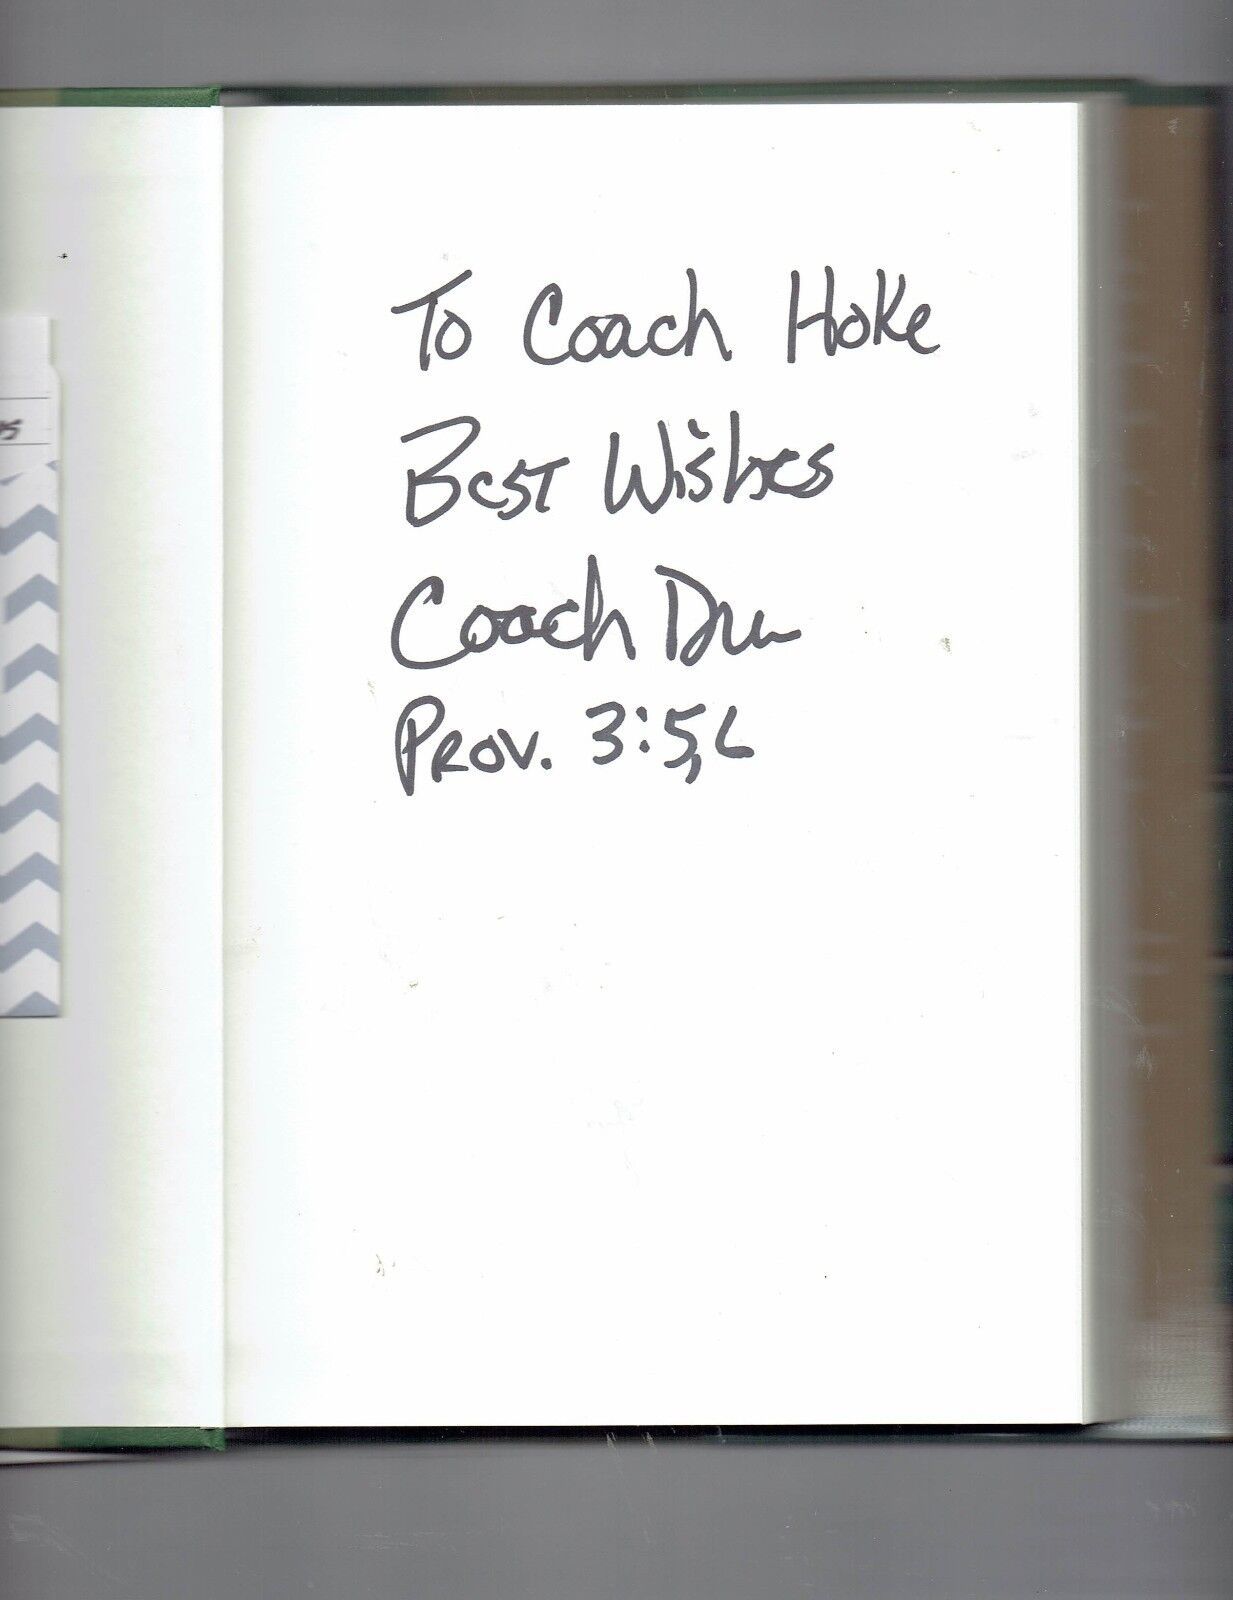 To Coach Hoke
Best Wishes
Coach Dru
Prov. 3:5,6